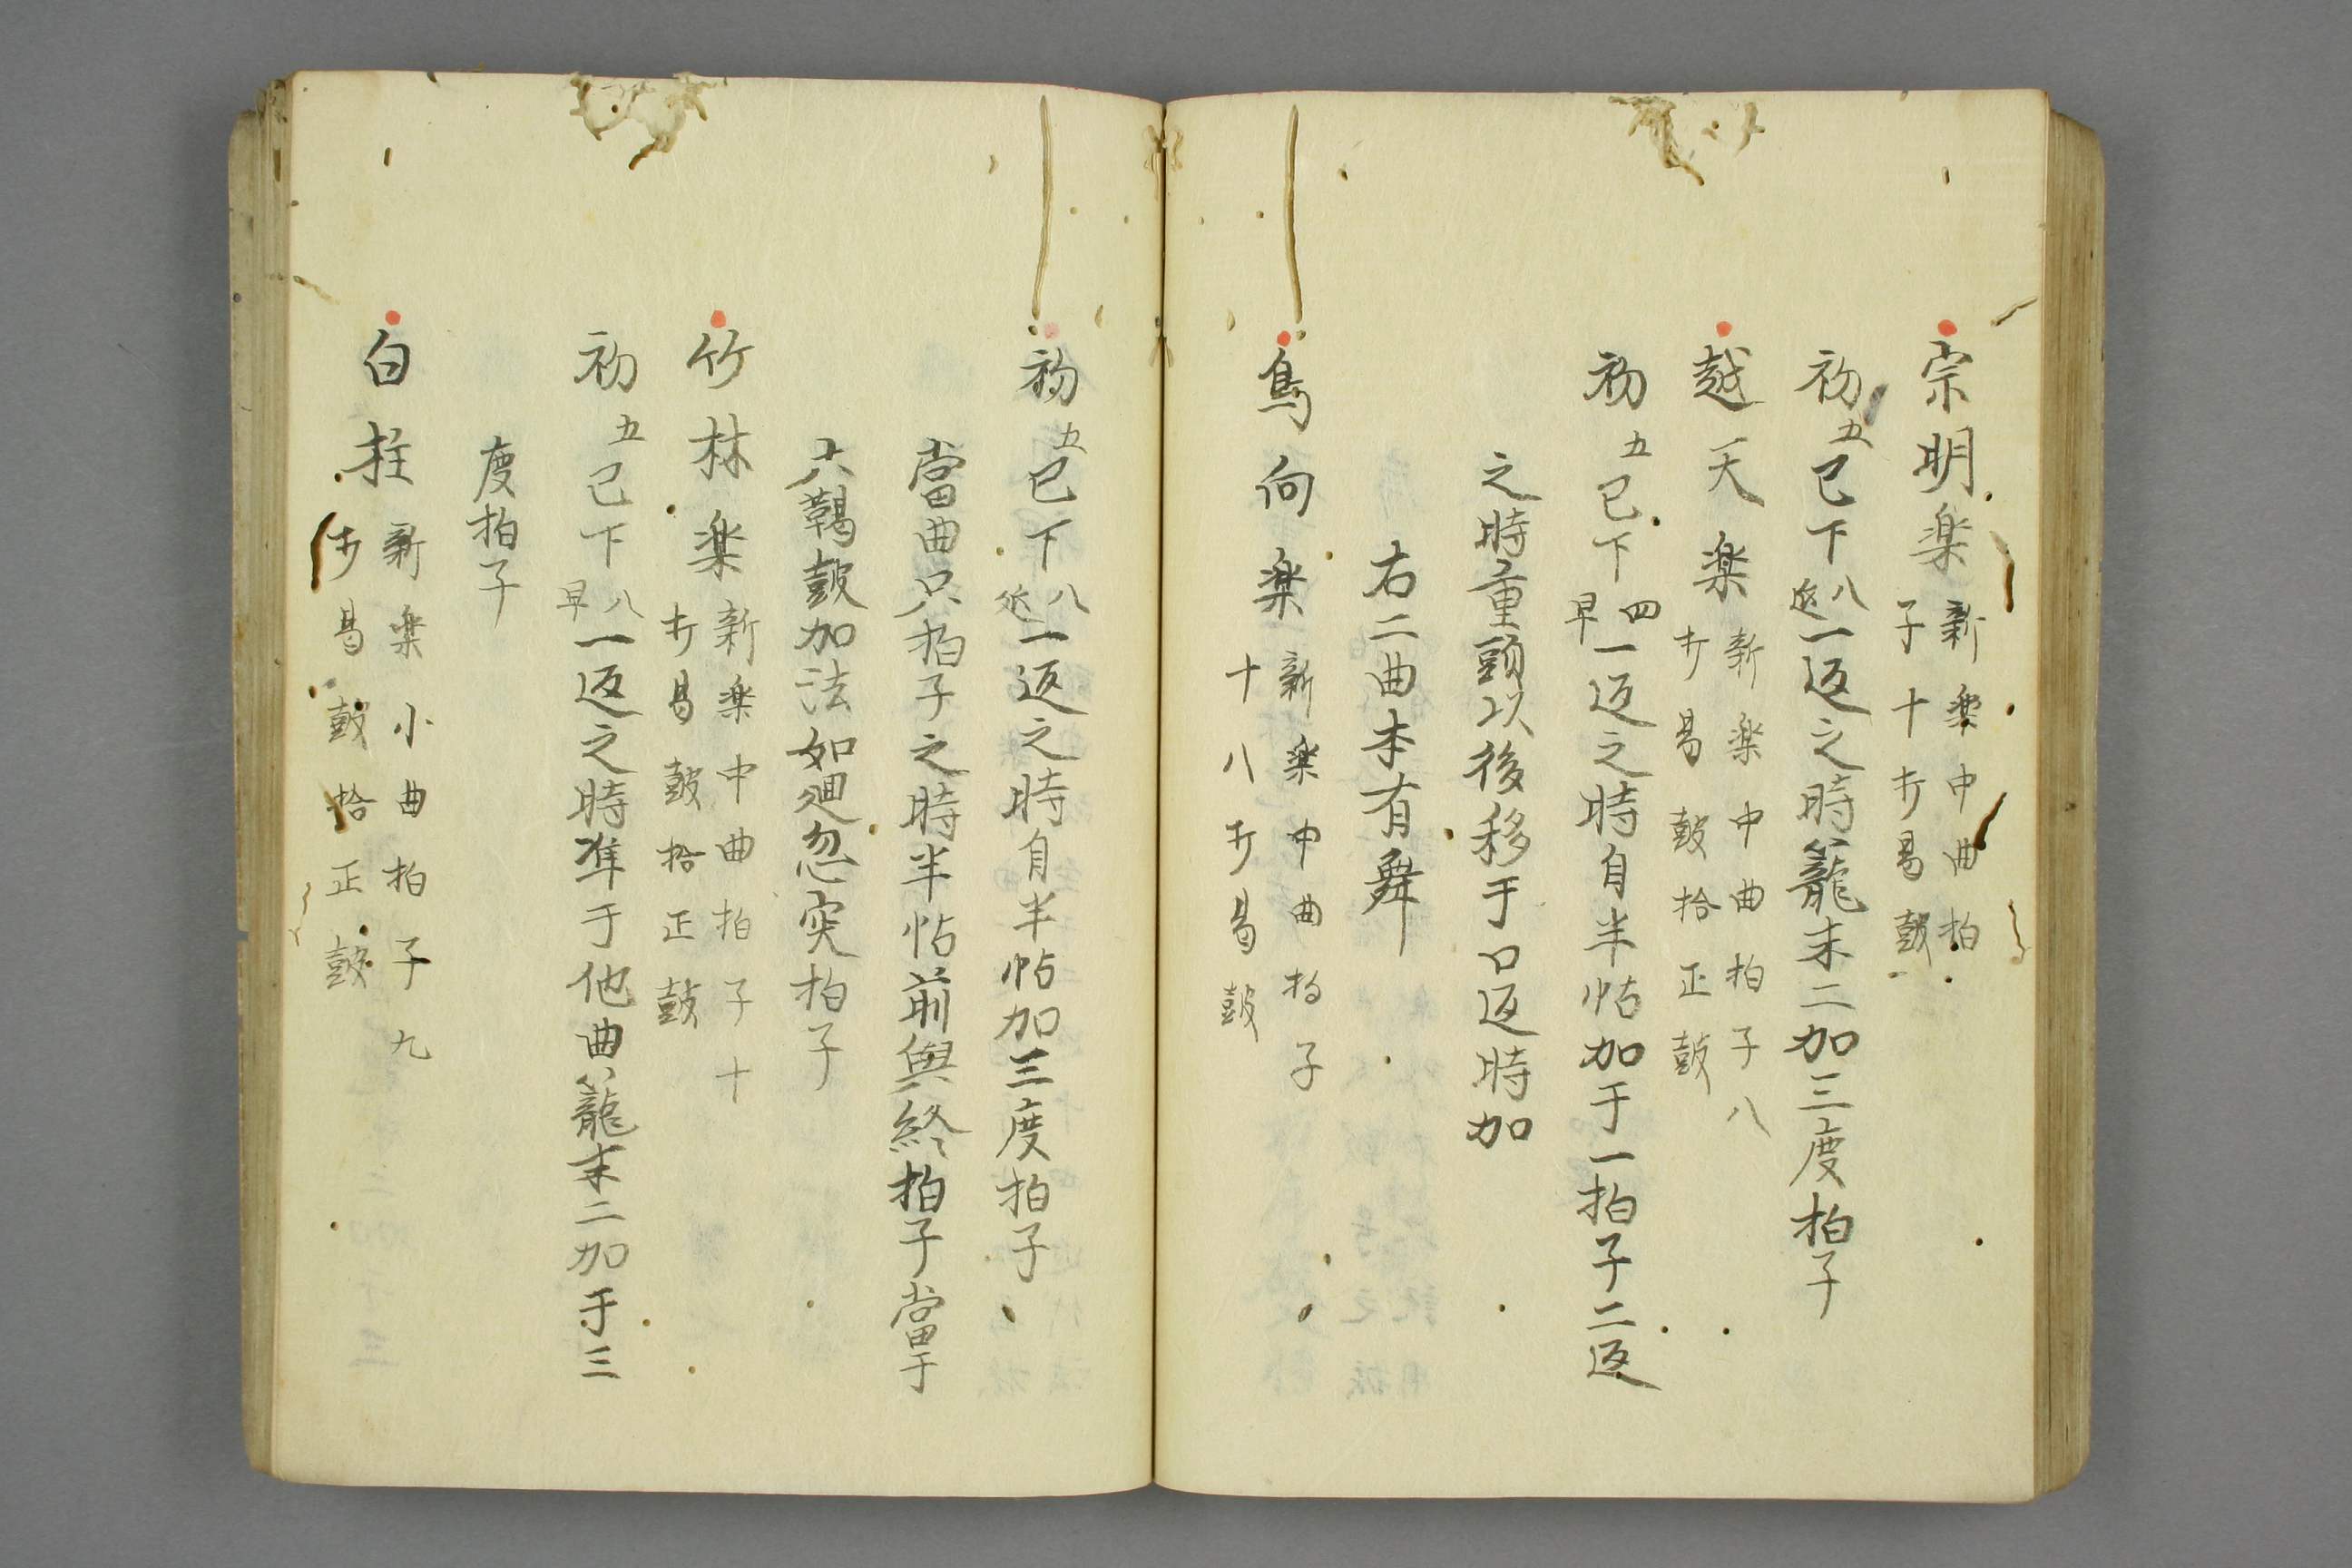 宗明楽 新楽中曲拍
子十打昜鼓
初五已下八延一返之時籠末二加三度拍子
越天楽 新楽中曲拍子八
打昜鼓拾正鼓
初五已下四早一返之時自半帖加于一拍子二返
之時重頭以後移于口返時加
右二曲本有舞
鳥向楽 新楽中曲拍子
十八打昜鼓
初五已下八延一返之時自半帖加三度拍子
當曲只拍子之時半帖前與終拍子當于
六鞨鼓加法如廻忽突拍子
竹林楽 新楽中曲拍子十
打昜鼓拾正鼓
初五已下八早一返之時准于他曲籠末二加于三
度拍子
白柱 新楽小曲拍子九
打昜鼓拾正鼓